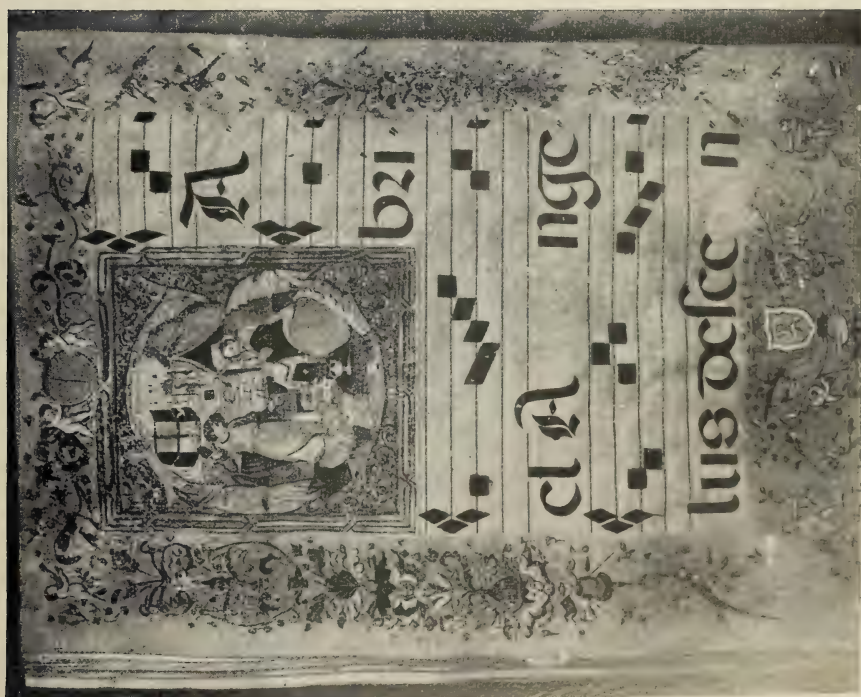 A
bri
el A nge
lus desce n